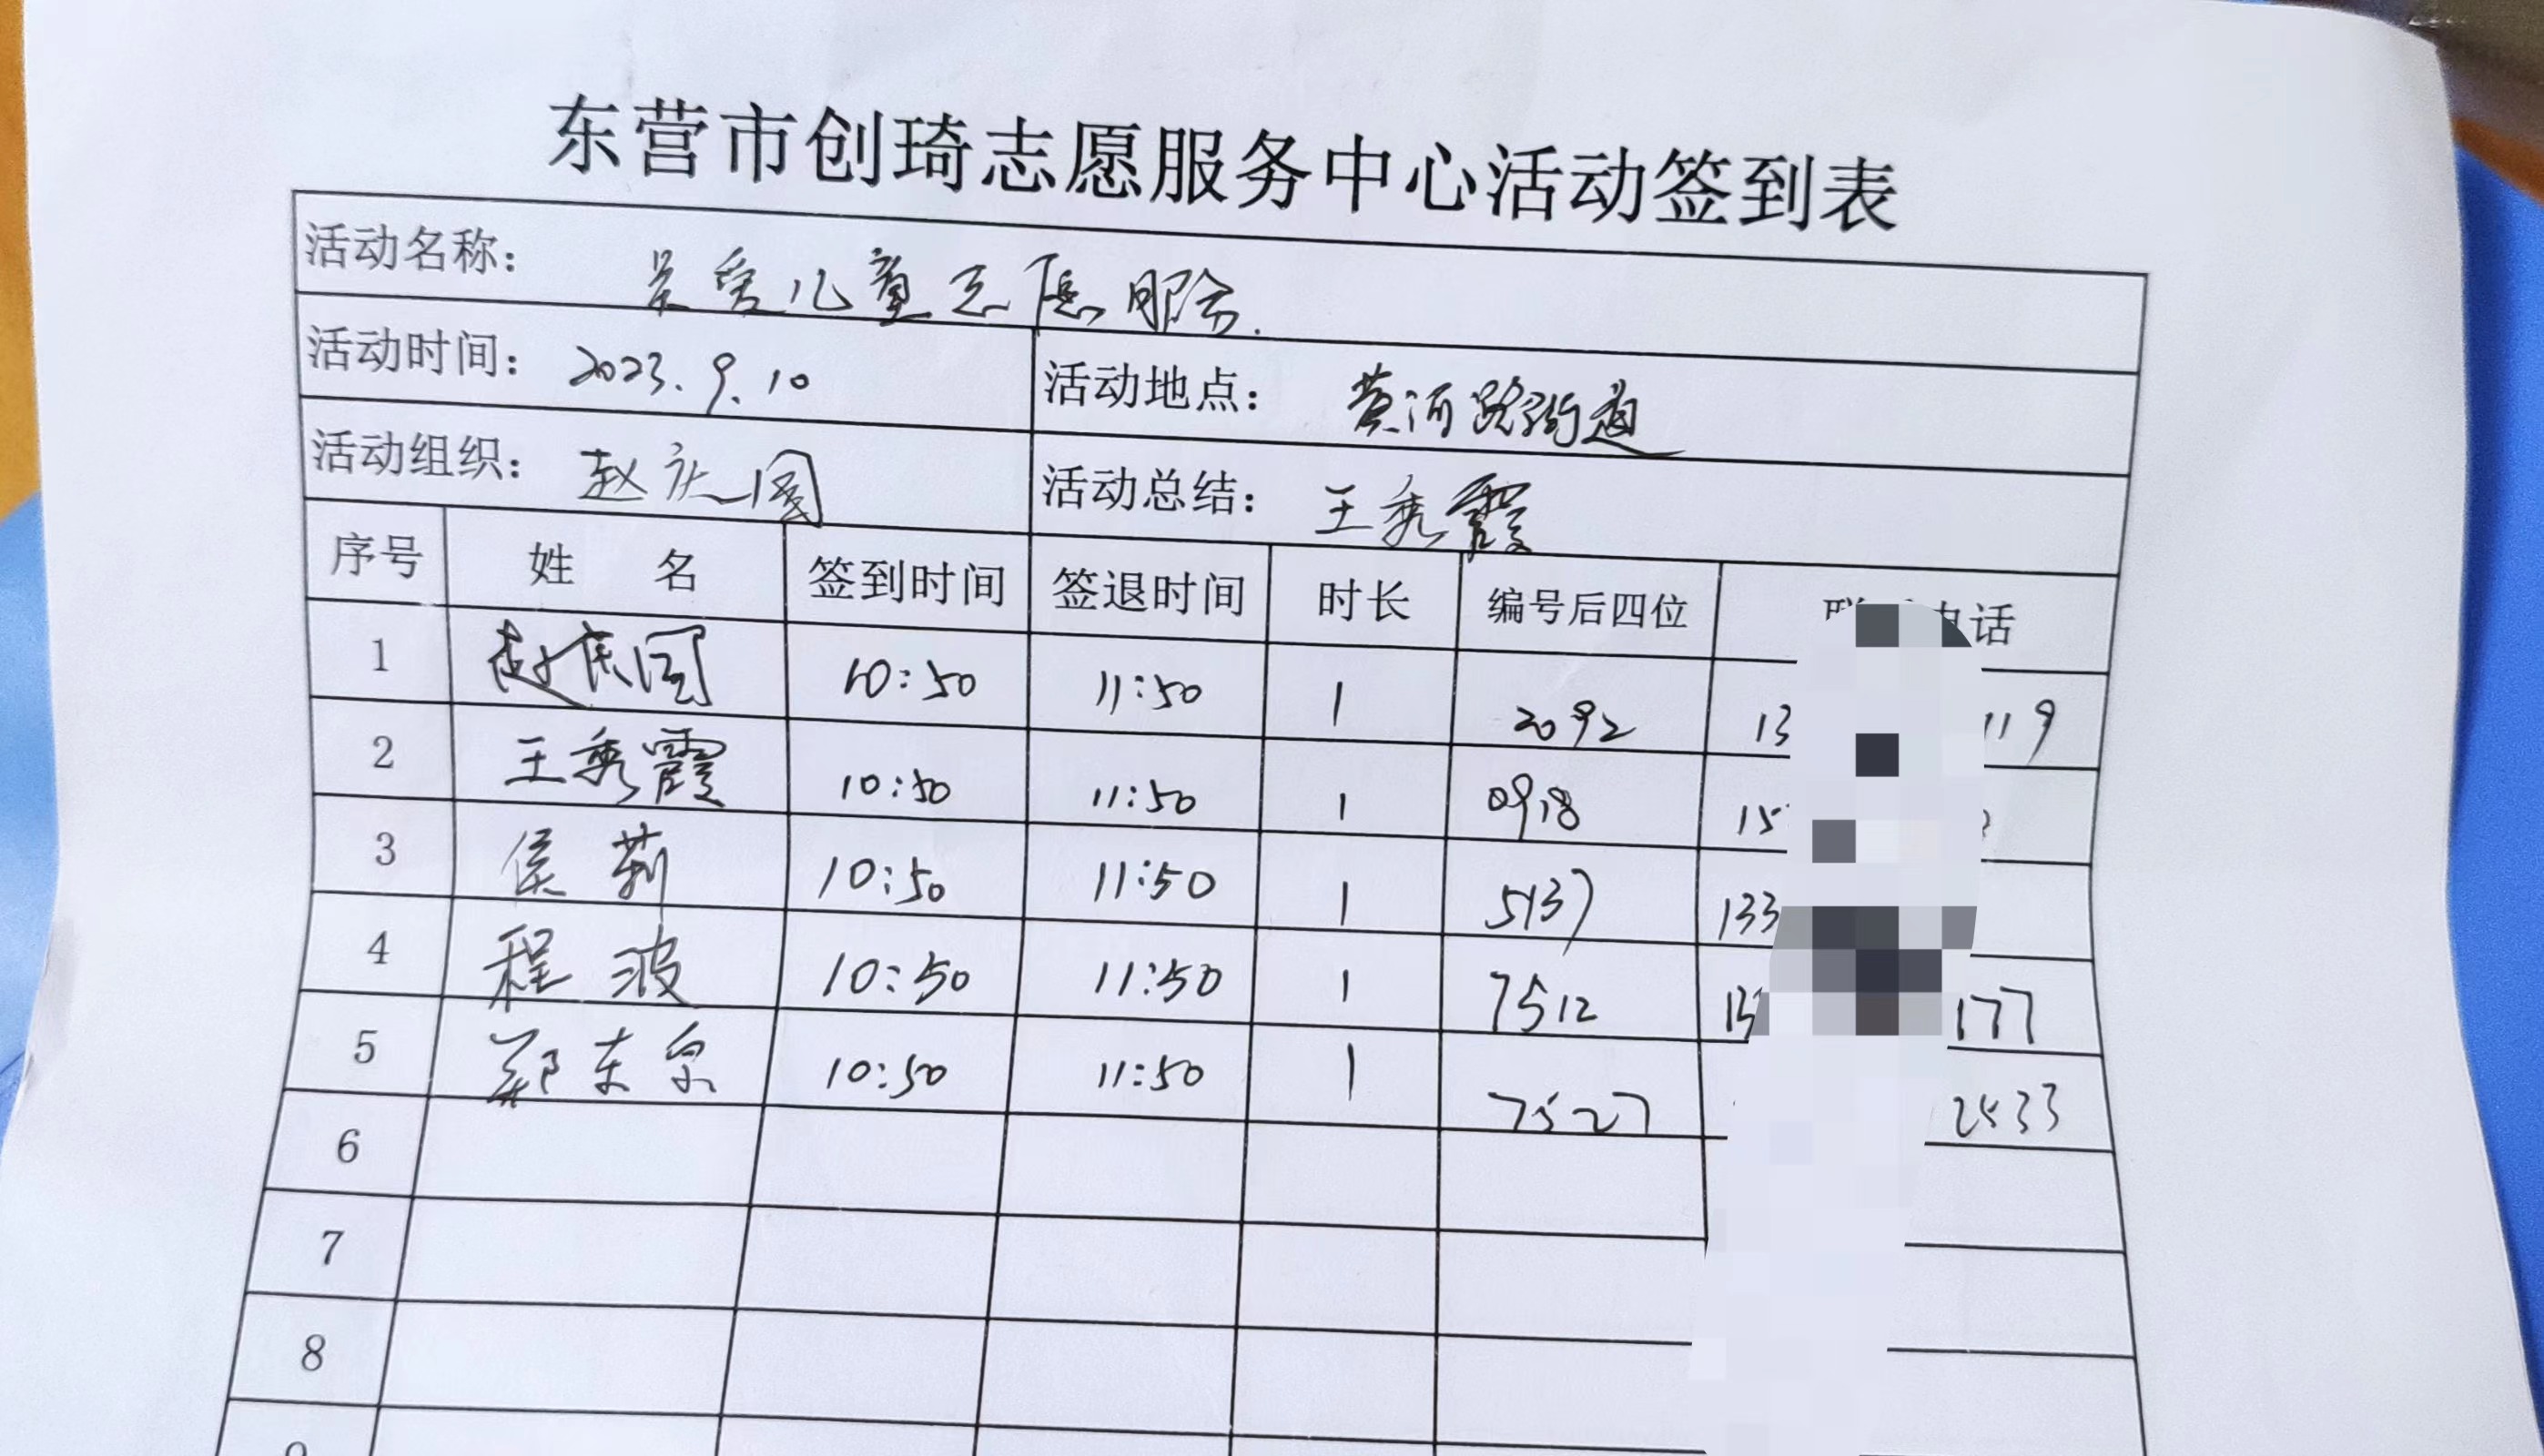 东营市创琦志愿服务中心活动签到表
活动名称： 关爱儿童志愿服务.
活动时间： 2023.9.10 活动地点： 黄河路街道
活动组织： 赵庆国 活动总结： 王秀霞
序号 姓 名 签到时间 签退时间 时长 编号后四位 话
1 赵庆国 10:50 11:50 1 2092 13 119
2 王秀霞 10:50 11:50 1 0918 15
3 侯莉 10:50 11:50 1 5137 133
4 程波 10:50 11:50 1 7512 177
5 郑东泉 10:50 11:50 1 7527 2533
6
7
8